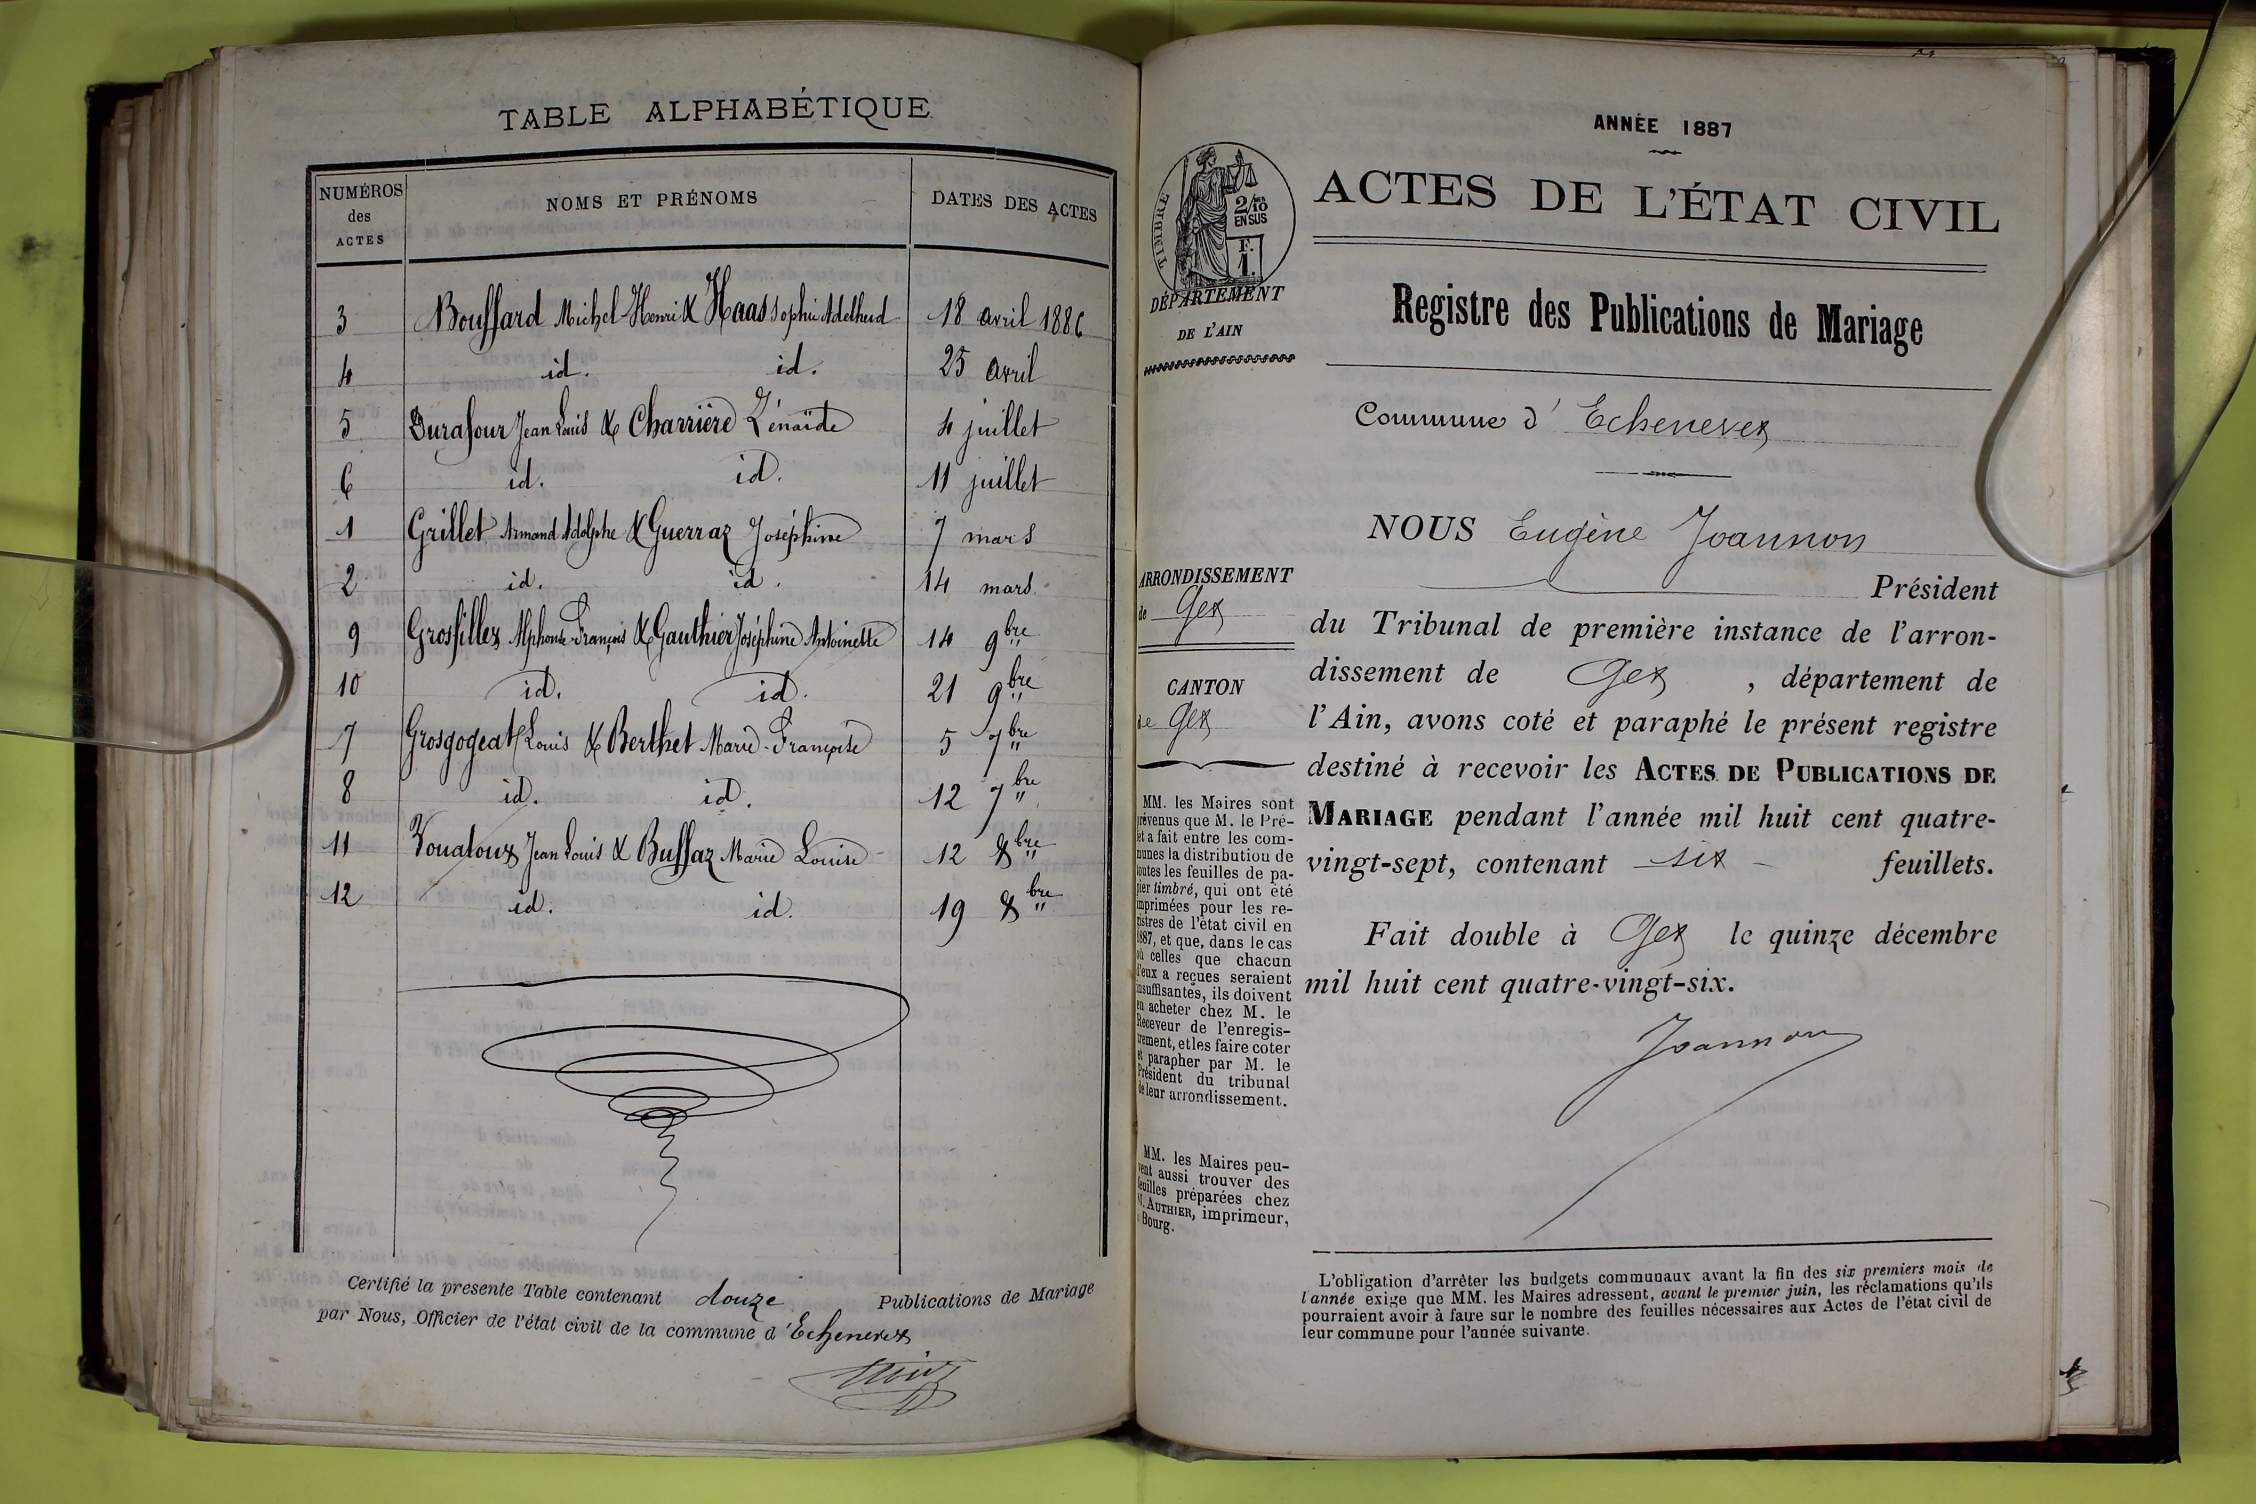 TABLE ALPHABÉTIQUE
NUMÉROS des ACTES NOMS ET PRÉNOMS DATES DES ACTES
3 Bouffard Michel Henri & Haas Sophie Adelheid 18 avril 1886
4 id. id. 25 avril
5 Durafour Jean Louis & Charrière Zénaïde 4 juillet
6 id. id. 11 juillet
1 Grillet Armand Adolphe & Guerraz Joséphine 7 mars
2 id. id. 14 mars
9 Grosfillex Alphonse François & Gauthier Joséphine Antoinette 14 9bre
10 id. id. 21 9bre
7 Grosgogeat Louis & Berthet Marie-Françoise 5 7bre
8 id. id. 12 7bre
11 Vouatoux Jean Louis & Buffaz Marie Louise 12 8bre
12 id. id. 19 8bre
Certifié la presente Table contenant douze Publications de Mariage
par Nous, Officier de l'état civil de la commune d'Echenevex
ANNÉE 1887
TIMBRE
2/10 EN SUS
F. 1.
DÉPARTEMENT
DE L'AIN
ACTES DE L'ÉTAT CIVIL
Registre des Publications de Mariage
Commune d'Echenevex
ARRONDISSEMENT
de Gex
CANTON
de Gex
MM. les Maires sont
prévenus que M. le Pré-
fet a fait entre les com-
munes la distribution de
toutes les feuilles de pa-
pier timbré, qui ont été
imprimées pour les re-
gistres de l'état civil en
1887, et que, dans le cas
où celles que chacun
d'eux a reçues seraient
insuffisantes, ils doivent
en acheter chez M. le
Receveur de l'enregis-
trement, et les faire coter
et parapher par M. le
Président du tribunal
de leur arrondissement.
MM. les Maires peu-
vent aussi trouver des
feuilles préparées chez
M. AUTHIER, imprimeur,
à Bourg.
NOUS Eugène Joannon
Président
du Tribunal de première instance de l'arron-
dissement de Gex, département de
l'Ain, avons coté et paraphé le présent registre
destiné à recevoir les ACTES DE PUBLICATIONS DE
MARIAGE pendant l'année mil huit cent quatre-
vingt-sept, contenant six feuillets.
Fait double à Gex le quinze décembre
mil huit cent quatre-vingt-six.
Joannon
L'obligation d'arrêter les budgets communaux avant la fin des six premiers mois de
l'année exige que MM. les Maires adressent, avant le premier juin, les réclamations qu'ils
pourraient avoir à faire sur le nombre des feuilles nécessaires aux Actes de l'état civil de
leur commune pour l'année suivante.